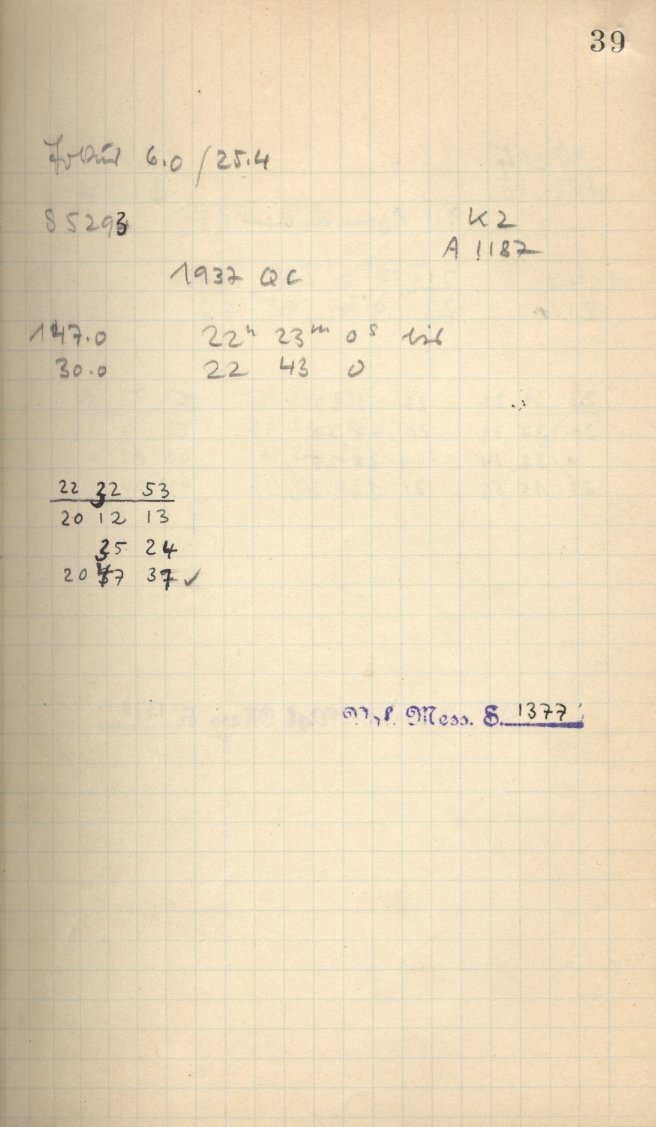 39
6.0 / 25.4
85293
K2
A 1187
1937 QC
147.0 22ʰ 23ᵐ 0ˢ bis
30.0 22 43 0
22 32 53
20 12 13
35 24
20 47 37 ✓
Mess. S. 1377